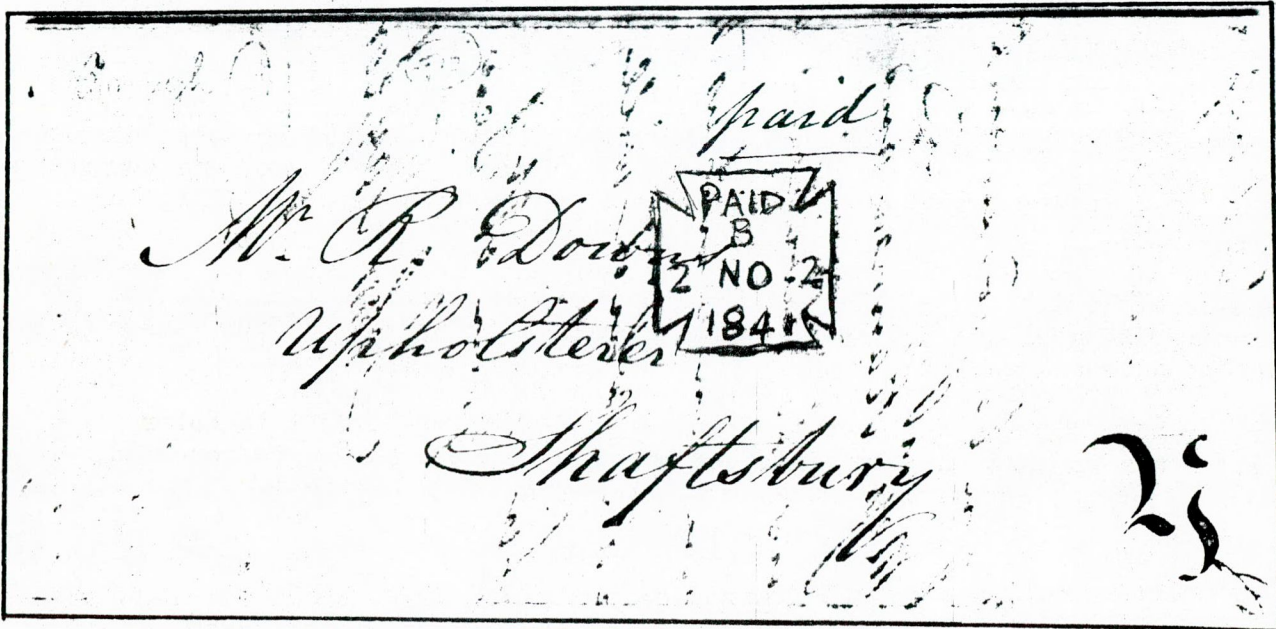 paid
PAID
B
2 NO 2
1841
Mr. R.
Upholsterer
Shaftsbury